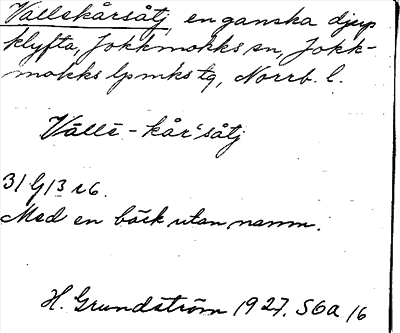 Vallekårsåtj, en ganska djup
klyfta, Jokkmokks sn, Jokk-
mokks lpmks tg, Norrb. l.
Vāllē-kår'såtj
31 G 13 r 6.
Med en bäck utan namn.
H. Grundström 1927. S6a 16